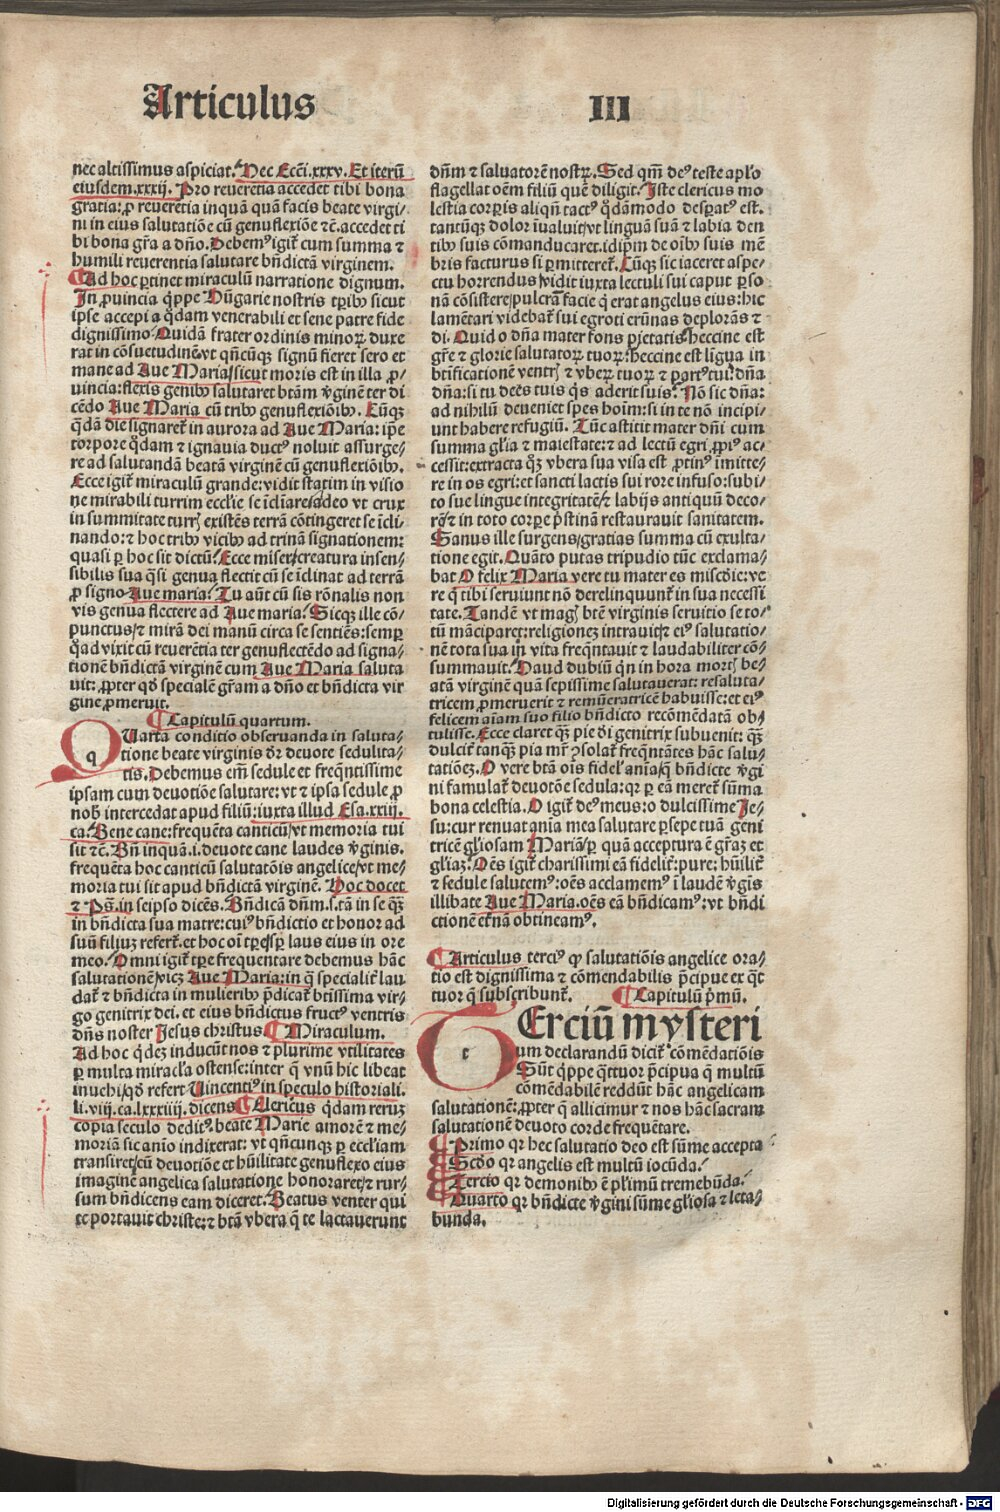 Articulus III
nec altissimus aspiciat. Hec Ecc̄i.xxxv. Et iterū
eiusdem.xxxij. Pro reuerentia accedet tibi bona
gratia: ꝓ reuerētia inquā quā facis beate virgi⸗
ni in eius salutatiōe cū genuflexiōe ⁊c̄. accedet ti
bi bona gr̄a a dño. Debemꝰ igit̄ cum summa ⁊
humili reuerentia salutare bñdictā virginem.
¶ Ad hoc ꝑtinet miraculū narratione dignum.
In ꝓuincia q̇ppe Hūgarie nostris tꝑibꝫ sicut
ipse accepi a q̇dam venerabili et sene patre fide
dignissimo. Quidā frater ordinis minoꝝ duxe
rat in cōsuetudinē vt qn̄cūqꝫ signū fieret sero et
mane ad Aue Maria/sicut moris est in illa ꝓ⸗
uincia: flexis genibꝫ salutaret btām v̄ginē ter di
cēdo Aue Maria cū tribꝫ genuflexiōibꝫ. Cūqꝫ
q̇dā die signaret̄ in aurora ad Aue Maria: ip̄e
torpore q̇dam ⁊ ignauia ductꝰ noluit assurge⸗
re ad salutandā beatā virginē cū genuflexiōibꝫ.
Ecce igit̄ miraculū grande: vidit statim in visio
ne mirabili turrim eccl'ie se īcliare/adeo vt crux
in summitate turrꝭ existēs terrā cōtingeret se īcli⸗
nando: ⁊ hoc tribꝫ vicibꝫ ad trinā signationem:
quasi ꝑ hoc sit dictū. Ecce miser/creatura insen⸗
sibilis sua q̇si genua flectit cū se īclinat ad terrā
ꝓ signo Aue maria. Tu aūt cū sis rōnalis non
vis genua flectere ad Aue maria. Sicqꝫ ille cō⸗
punctus/⁊ mirā dei manū circa se sentiēs: semꝑ
q̇ad vixit cū reuerētia ter genuflectēdo ad signa⸗
tionē bñdictā virginē cum Aue Maria saluta
uit: ꝓpter qd̄ specialē gr̄am a dño et bñdicta vir
gine ꝓmeruit.
¶ Capitulū quartum.
q
QUarta conditio obseruanda in saluta⸗
tione beate virginis dr̄ deuote sedulita⸗
tis. Debemus em̄ sedule et freq̄ntissime
ipsam cum deuotiōe salutare: vt ⁊ ipsa sedule ꝓ
nobꝭ intercedat apud filiū: iuxta illud Esa.xxiij.
ca. Bene cane: frequēta canticū/vt memoria tui
sit ⁊c̄. Bn̄ inquā .i. deuote cane laudes v̄ginis.
frequēta hoc canticū salutatōis angelice/vt me⸗
moria tui sit apud bñdictā virginē. Hoc docet
⁊ Ps̄. in seipso dicēs. Bñdicā dñm .s. tā in se qꝫ
in bñdicta sua matre: cuiꝰ bñdictio et honor ad
suū filiuꝫ refert̄. et hoc oī tꝑe/sꝑ laus eius in ore
meo. Omni igit̄ tꝑe frequentare debemus hāc
salutationē/vicꝫ Aue Maria: in q̄ specialit̄ lau
dat̄ ⁊ bñdicta in mulieribꝫ p̄dicat̄ btissima vir⸗
go genitrix dei. et eius bñdictus fructꝰ ventris
dñs noster Jesus christus. ¶ Miraculum.
Ad hoc q̇dez inducūt nos ⁊ plurime vtilitates
ꝑ multa miracl'a ostense: inter q̄ vnū hic libeat
inuehi/qd̄ refert Uincentiꝰ in speculo historiali.
li.viij.ca.lxxxiiij. dicens ¶ Clericus q̇dam reruꝫ
copia seculo deditꝰ. beate Marie amorē ⁊ me⸗
moriā sic anīo indixerat: vt qn̄cunqꝫ ꝑ eccl'iam
transiret/cū deuotiōe et hūilitate genuflexo eius
imaginē angelica salutatione honoraret/⁊ rur⸗
sum bñdicens eam diceret. Beatus venter qui
te portauit christe: ⁊ btā vbera q̄ te lactauerunt
dñm ⁊ saluatorē nostꝝ. Sed qm̄ deꝰ teste apl'o
flagellat oēm filiū quē diligit. Iste clericus mo
lestia corꝑis aliqn̄ tactꝰ q̇dāmodo desꝑatꝰ est.
tantūqꝫ dolor īualuit/vt linguā suā ⁊ labia den
tibꝫ suis cōmanducaret. idip̄m de oībꝫ suis mē
bris facturus si ꝑmitteret̄. Cūqꝫ sic iaceret aspe⸗
ctu horrendus/vidit iuxta lectuli sui caput ꝑso
nā cōsistere/pulcrā facie q̄ erat angelus eius: hic
lamētari videbat̄ sui egroti erūnas deplorās ⁊
di. Quid o dña mater fons pietatis/heccine est
gr̄e ⁊ glorie salutatoꝝ tuoꝝ: heccine est ligua in
btīficationē ventrꝭ ⁊ vbeꝝ tuoꝝ ⁊ partꝰ tui. dña
dña: si tu dees tuis q̇s aderit suis. Nō sic dña:
ad nihilū deueniet spes hoīm: si in te nō incipi⸗
unt habere refugiū. Tūc astitit mater dñi cum
summa gl'ia ⁊ maiestate: ⁊ ad lectū egri ꝓpiꝰ ac⸗
cessit: extracta qꝫ vbera sua visa est ꝓtinꝰ imitte⸗
re in os egri: et sancti lactis sui rore infuso: subi⸗
to sue lingue integritatē/⁊ labijs antiquū deco⸗
rē/⁊ in toto corꝑe p̄stinā restaurauit sanitatem.
Sanus ille surgens/gratias summa cū exulta⸗
tione egit. Quāto putas tripudio tūc exclama⸗
bat O felix Maria vere tu mater es misc̄die: ve
re q̇ tibi seruiunt nō derelinquunt̄ in sua necessi
tate. Tandē vt magꝭ btē virginis seruitio se to⸗
tū māciparet: religionez intrauit/⁊ eiꝰ salutatio⸗
nē tota sua in vita freq̄ntauit ⁊ laudabiliter cō⸗
summauit. Haud dubiū q̇n in hora mortꝭ be⸗
atā virginē quā sepissime salutauerat: resaluta⸗
tricem ꝓmeruerit ⁊ remūeratricē habuisse: et eiꝰ
felicem aīam suo filio bñdicto recōmēdatā ob⸗
tulisse. Ecce claret qꝫ pie di genitrix subuenit: qꝫ
dulcit̄ tanqꝫ pia mr̄ ꝯsolat̄ freq̄ntātes hāc salu⸗
tatiōeꝫ. O vere btā oīs fidel' anīa/q̄ bñdicte v̄gi
ni famulat̄ deuotōe sedula: qꝛ ꝑ eā meret̄ sūma
bona celestia. O igit̄ deꝰ meus: o dulcissime Je⸗
su: cur renuat anīa mea salutare ꝑsepe tuā geni
tricē gl'iosam Mariā/ꝑ quā acceptura ē gr̄aꝫ et
gl'iaꝫ. Oēs igit̄ charissimi eā fidelit̄: pure: hūilit̄
⁊ sedule salutemꝰ: oēs acclamemꝰ ī laudē v̄gīs
illibate Aue Maria. oēs eā bñdicamꝰ: vt bñdi
ctionē et̄nā obtineamꝰ.
¶ Articulus terciꝰ ꝙ salutatiōis angelice ora⸗
tio est dignissima ⁊ cōmendabilis p̄cipue ex q̇t
tuor q̄ subscribunt̄. ¶ Capitulū p̄mū.
t
TErciū mysteri
um declarandū dicit̄ cōmēdatiōis
Sūt q̇ppe q̇ttuor p̄cipua q̄ multū
cōmēdabilē reddūt hāc angelicam
salutationē: ꝓpter q̄ allicimur ⁊ nos hāc sacram
salutationē deuoto corde frequētare.
¶ Primo qꝛ hec salutatio deo est sūme accepta
¶ Scdo qꝛ angelis est multū iocūda.
¶ Tercio qꝛ demonibꝫ ē pl'imū tremebūda.
¶ Quarto qꝛ bñdicte v̄gini sūme gl'iosa ⁊ leta⸗
bunda.
Digitalisierung gefördert durch die Deutsche Forschungsgemeinschaft - DFG